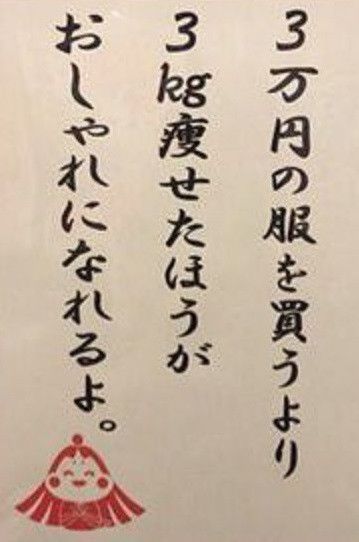 3万円の服を買うより
3kg痩せたほうが
おしゃれになれるよ。